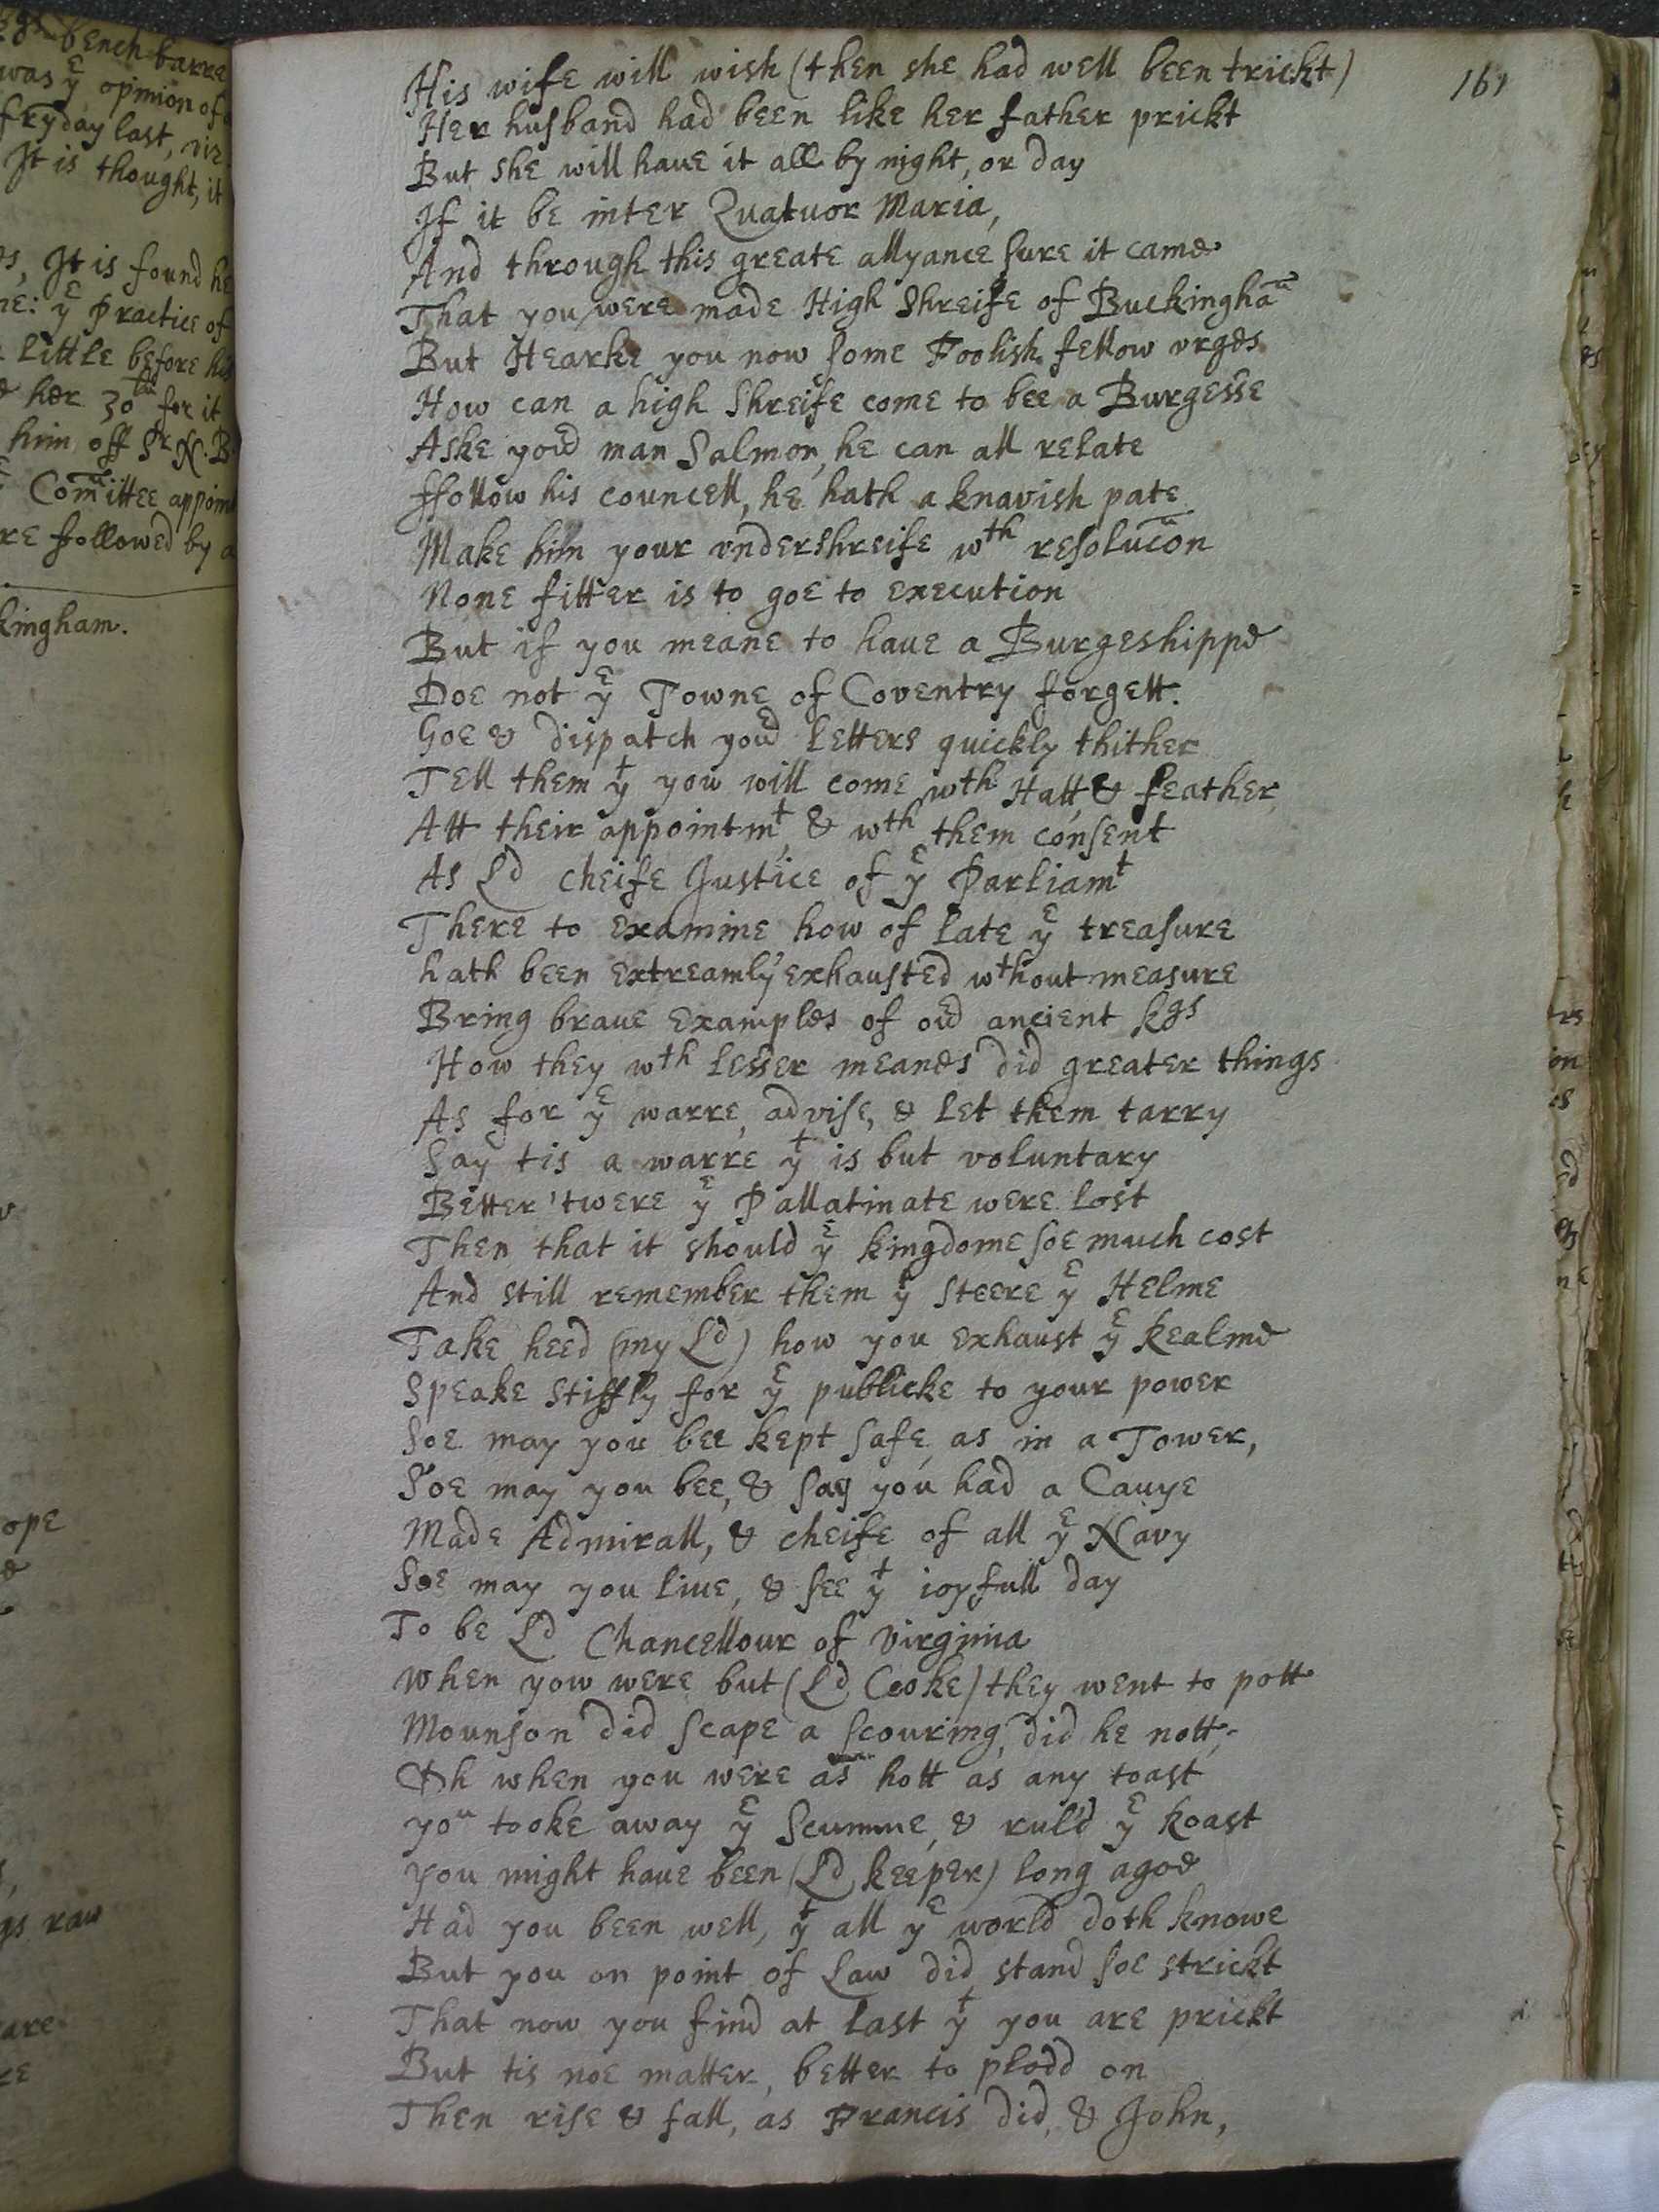 bench barre
was yᵉ opinion of
fryday last, viz
It is thought, it
It is found he
yᵉ Practice of
little before his
her 30ᵗʰ for it
him off Sʳ N. B
Com̃ittee appoin
followed by a
kingham.
ope
raw
161
His wife will wish (then she had well been trickt)
Her husband had been like her father prickt
But she will haue it all by night, or day
If it be inter Quatuor Maria,
And through this greate allyance sure it came
That you were made High Shreife of Buckinghã
But Hearke you now some Foolish fellow vrges
How can a high Shreife come to bee a Burgesse
Aske yoʳ man Salmon, he can all relate
ffollow his councell, he hath a knavish pate
Make him your vndershreife wᵗʰ resolucõn
None fitter is to goe to execution
But if you meane to haue a Burgeshippe
Doe not yᵉ Towne of Coventry forgett.
Goe & dispatch yoʳ letters quickly thither
Tell them yᵗ yow will come wᵗʰ Hatt, & feather
Att their appointmᵗ, & wᵗʰ them consent
As Lᵈ cheife Justice of yᵉ Parliamᵗ
There to examine how of late yᵉ treasure
hath been extreamly exhausted wᵗhout measure
Bring braue examples of oʳ ancient kgs
How they wᵗʰ lesser meanes did greater things
As for yᵉ warre, advise, & let them tarry
Say tis a warre yᵗ is but voluntary
Better 'twere yᵉ Pallatinate were lost
Then that it should yᵉ kingdome soe much cost
And still remember them yᵗ steere yᵉ Helme
Take heed (my Lᵈ) how you exhaust yᵉ Realme
Speake stiffly for yᵉ publicke to your power
Soe may you bee kept safe, as in a Tower,
Soe may you bee, & say you had a Cauye
Made Admirall, & cheife of all yᵉ Navy
Soe may you liue, & see yᵗ ioyfull day
To be Lᵈ Chancellour of Virginia
When yow were but (Lᵈ Cooke) they went to pott
Mounson did scape a scouring, did he nott,
Oh when you were as hott as any toast
yoᵘ tooke away yᵉ Scumme, & rul'd yᵉ Roast
you might haue been (Lᵈ keeper) long agoe
Had you been well, yᵗ all yᵉ world doth knowe
But you on point of Law did stand soe strickt
That now you find at last yᵗ you are prickt
But tis noe matter, better to plodd on
Then rise & fall, as Francis did, & John,